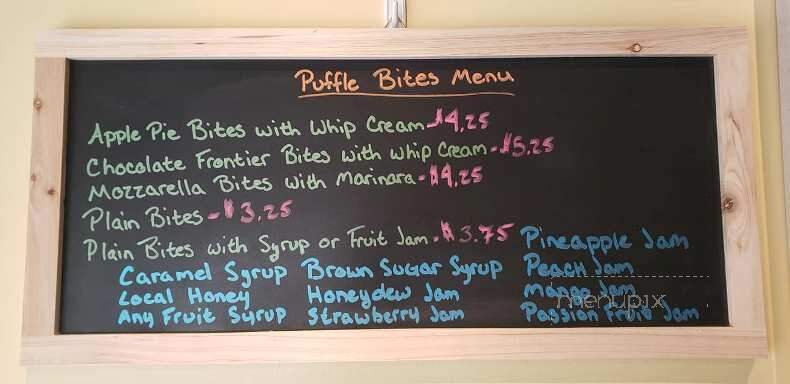 Puffle Bites Menu
Apple Pie Bites with Whip Cream-$4.25
Chocolate Frontier Bites with Whip Cream-$5.25
Mozzarella Bites with Marinara-$4.25
Plain Bites-$3.25
Plain Bites with Syrup or Fruit Jam-$3.75
Pineapple Jam
Caramel Syrup Brown Sugar Syrup Peach Jam
Local Honey Honeydew Jam Mango Jam
Any Fruit Syrup Strawberry Jam Passion Fruit Jam
menupix